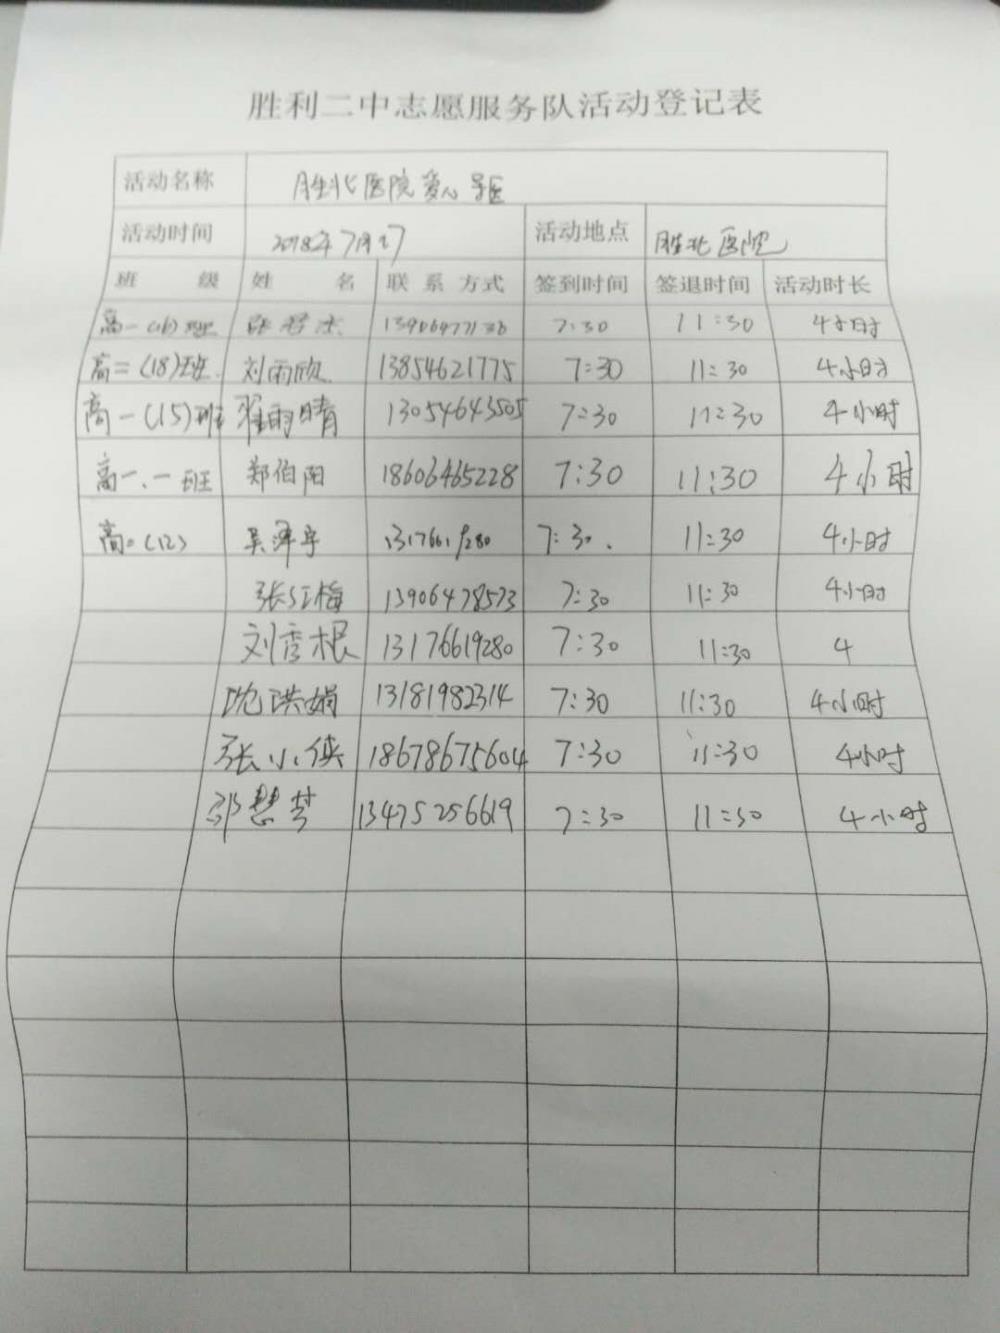 胜利二中志愿服务队活动登记表
活动名称 胜北医院爱心导医
活动时间 2018年7月27 活动地点 胜北医院
班 级 姓 名 联系方式 签到时间 签退时间 活动时长
高一(16)班 7:30 11:30 4小时
高二(18)班 刘雨欣 13854621775 7:30 11:30 4小时
高一(15)班 翟雨晴 13054643505 7:30 11:30 4小时
高一、一班 郑伯阳 18606465228 7:30 11:30 4小时
高。(12) 吴泽宇 7:30. 11:30 4小时
张红梅 13906478573 7:30 11:30 4小时
刘秀根 13176619280 7:30 11:30 4
沈洪娟 13181982314 7:30 11:30 4小时
张小侠 18678675604 7:30 11:30 4小时
邵慧芳 13475256619 7:30 11:30 4小时